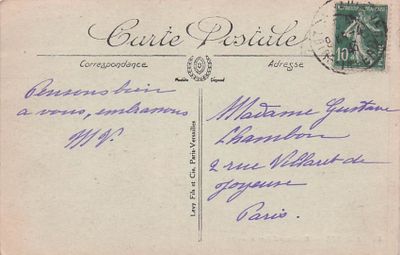 Carte Postale
Correspondance
Adresse
Pensons bien
a vous, embrassons
MV.
Madame Gustave
Chambon
2 rue Villaret de
Joyeuse
Paris.
Levy Fils et Cie, Paris-Versailles
10